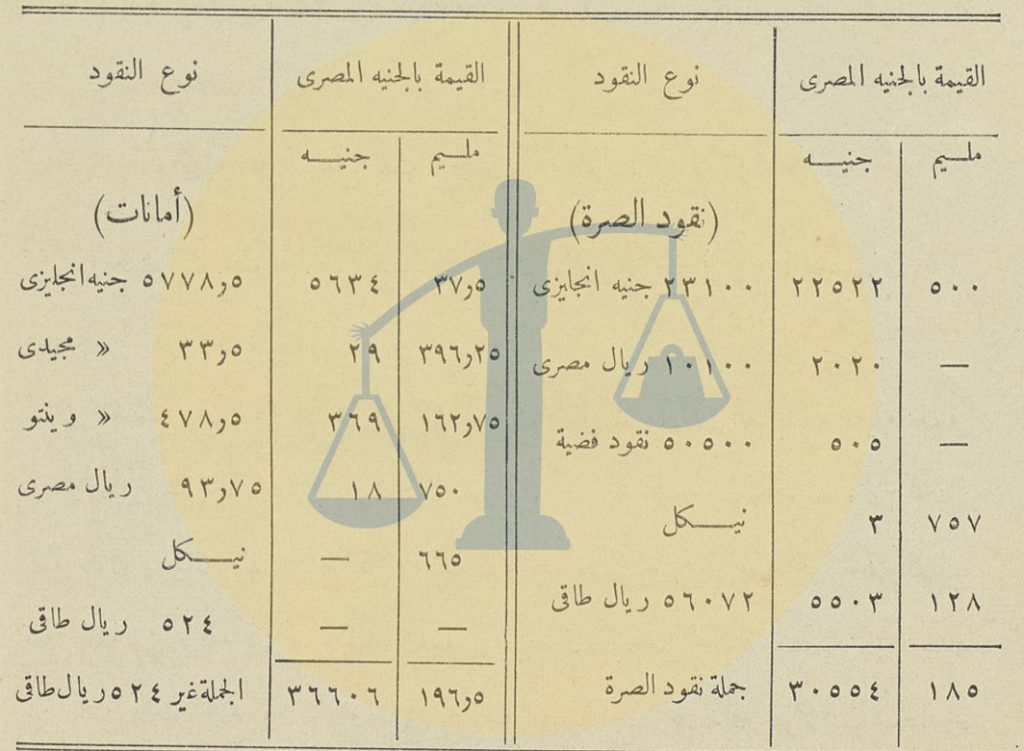 القيمة بالجنيه المصرى نوع النقود القيمة بالجنيه المصرى نوع النقود
مليم جنيه مليم جنيه
(نقود الصرة) (أمانات)
٥٠٠ ٢٢٥٢٢ ٢٣١٠٠ جنيه انجليزى ٣٧٫٥ ٥٦٣٤ ٥٧٧٨٫٥ جنيه انجليزى
— ٢٠٢٠ ١٠١٠٠ ريال مصرى ٣٩٦٫٢٥ ٢٩ ٣٣٫٥ » مجيدى
— ٥٠٥ ٥٠٥٠٠ نقود فضية ١٦٢٫٧٥ ٣٦٩ ٤٧٨٫٥ » وينتو
٧٥٧ ٣ نيكل ٧٥٠ ١٨ ٩٣٫٧٥ ريال مصرى
١٢٨ ٥٥٠٣ ٥٦٠٧٢ ريال طاقى ٦٦٥ — نيكل
— — ٥٢٤ ريال طاقى
١٨٥ ٣٠٥٥٤ جملة نقود الصرة ١٩٦٫٥ ٣٦٦٠٦ الجملة غير ٥٢٤ ريال طاقى